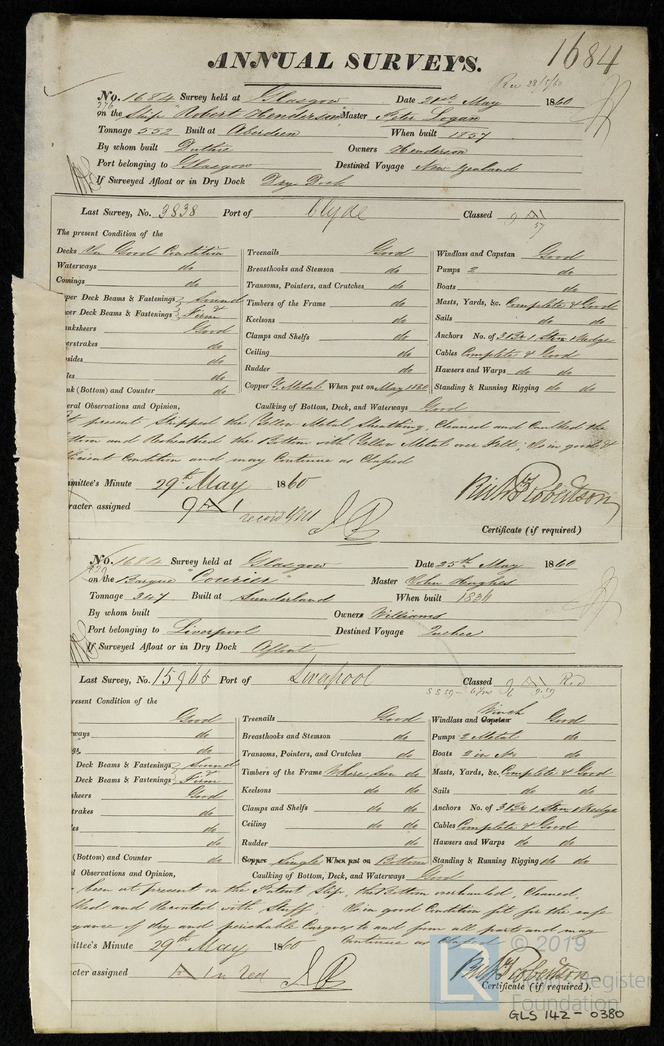 1684
ANNUAL SURVEYS.
Rec 28/5/60
No. 1684 Survey held at Glasgow Date 21st May 1860
on the Ship "Robert Henderson" Master Peter Logan
Tonnage 552 Built at Aberdeen When built 1857
By whom built Duthie Owners Henderson
Port belonging to Glasgow Destined Voyage New Zealand
If Surveyed Afloat or in Dry Dock Dry Dock
Last Survey, No. 3838 Port of Clyde Classed 9 A1
57
The present Condition of the
Decks In Good Condition Treenails Good Windlass and Capstan Good
Waterways do Breasthooks and Stemson do Pumps 2 do
Comings do Transoms, Pointers, and Crutches do Boats do
pper Deck Beams & Fastenings Sound Timbers of the Frame do Masts, Yards, &c. Complete & Good
wer Deck Beams & Fastenings & Firm Keelsons do Sails do do
nksheers Good Clamps and Shelfs do Anchors No. of 3 Br 1 Strm 1 Kedge
erstrakes do Ceiling do Cables Complete & Good
sides do Rudder do Hawsers and Warps do do
les do Copper Y. Metal When put on May 1860 Standing & Running Rigging do do
nk (Bottom) and Counter do
eral Observations and Opinion, Caulking of Bottom, Deck, and Waterways Good
t present Stripped the Yellow Metal Sheathing, Cleaned and Caulked the
ttom and Resheathed the Bottom with Yellow Metal over Felt, Is in good &
fficient Condition and may Continue as Classed
mmittee's Minute 29th May 1860
racter assigned 9 A 1
Certificate (if required)
No. 1684 Survey held at Glasgow Date 25th May 1860
on the Barque "Courier" Master John Hughes
Tonnage 247 Built at Sunderland When built 1834
By whom built Owners Williams
Port belonging to Liverpool Destined Voyage Quebec
If Surveyed Afloat or in Dry Dock Afloat
Last Survey, No. 15966 Port of Liverpool Classed Red
resent Condition of the
Good Treenails Good Windlass and Capstan Winch Good
ways do Breasthooks and Stemson do Pumps 2 Metal do
gs do Transoms, Pointers, and Crutches do Boats 2 in No do
Deck Beams & Fastenings Sound Timbers of the Frame Where Seen do Masts, Yards, &c. Complete & Good
Deck Beams & Fastenings & Firm Keelsons do do Sails do do
sheers Good Clamps and Shelfs do do Anchors No. of 3 Br 1 Strm 1 Kedge
trakes do Ceiling do do Cables Complete & Good
les do Rudder do Hawsers and Warps do do
(Bottom) and Counter do Copper Single When put on Bottom Standing & Running Rigging do do
l Observations and Opinion, Caulking of Bottom, Deck, and Waterways Good
been at present on the Patent Slip, the Bottom overhauled, Cleaned,
ked and Recoated with Stuff. Is in good Condition fit for the safe
yance of dry and perishable Cargoes to and from all parts and may
Continue as Classed
ittee's Minute 29th May 1860
cter assigned A 1 in Red
Certificate (if required).
© 2019
LR
Register
Foundation
GLS 142-0380